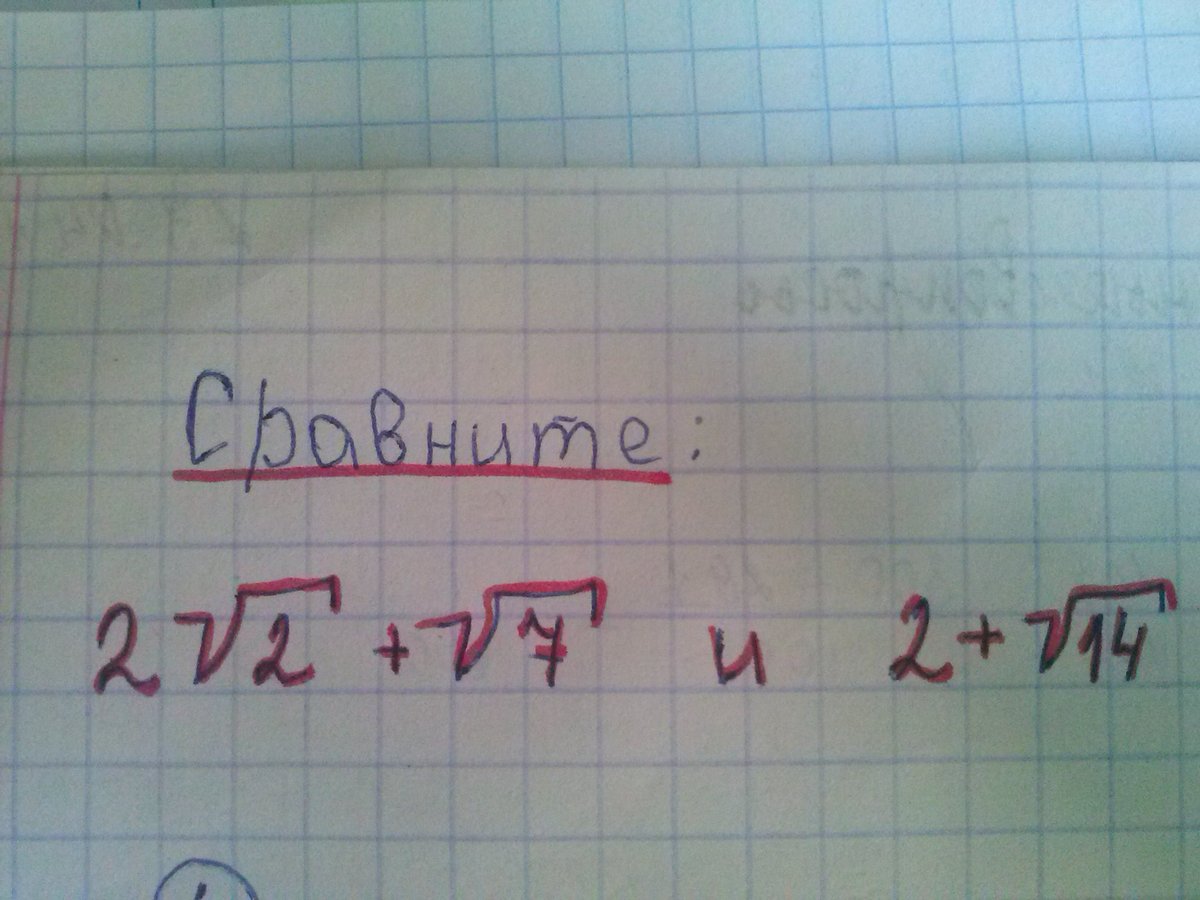 Сравните:
2√2 + √7 и 2 + √14